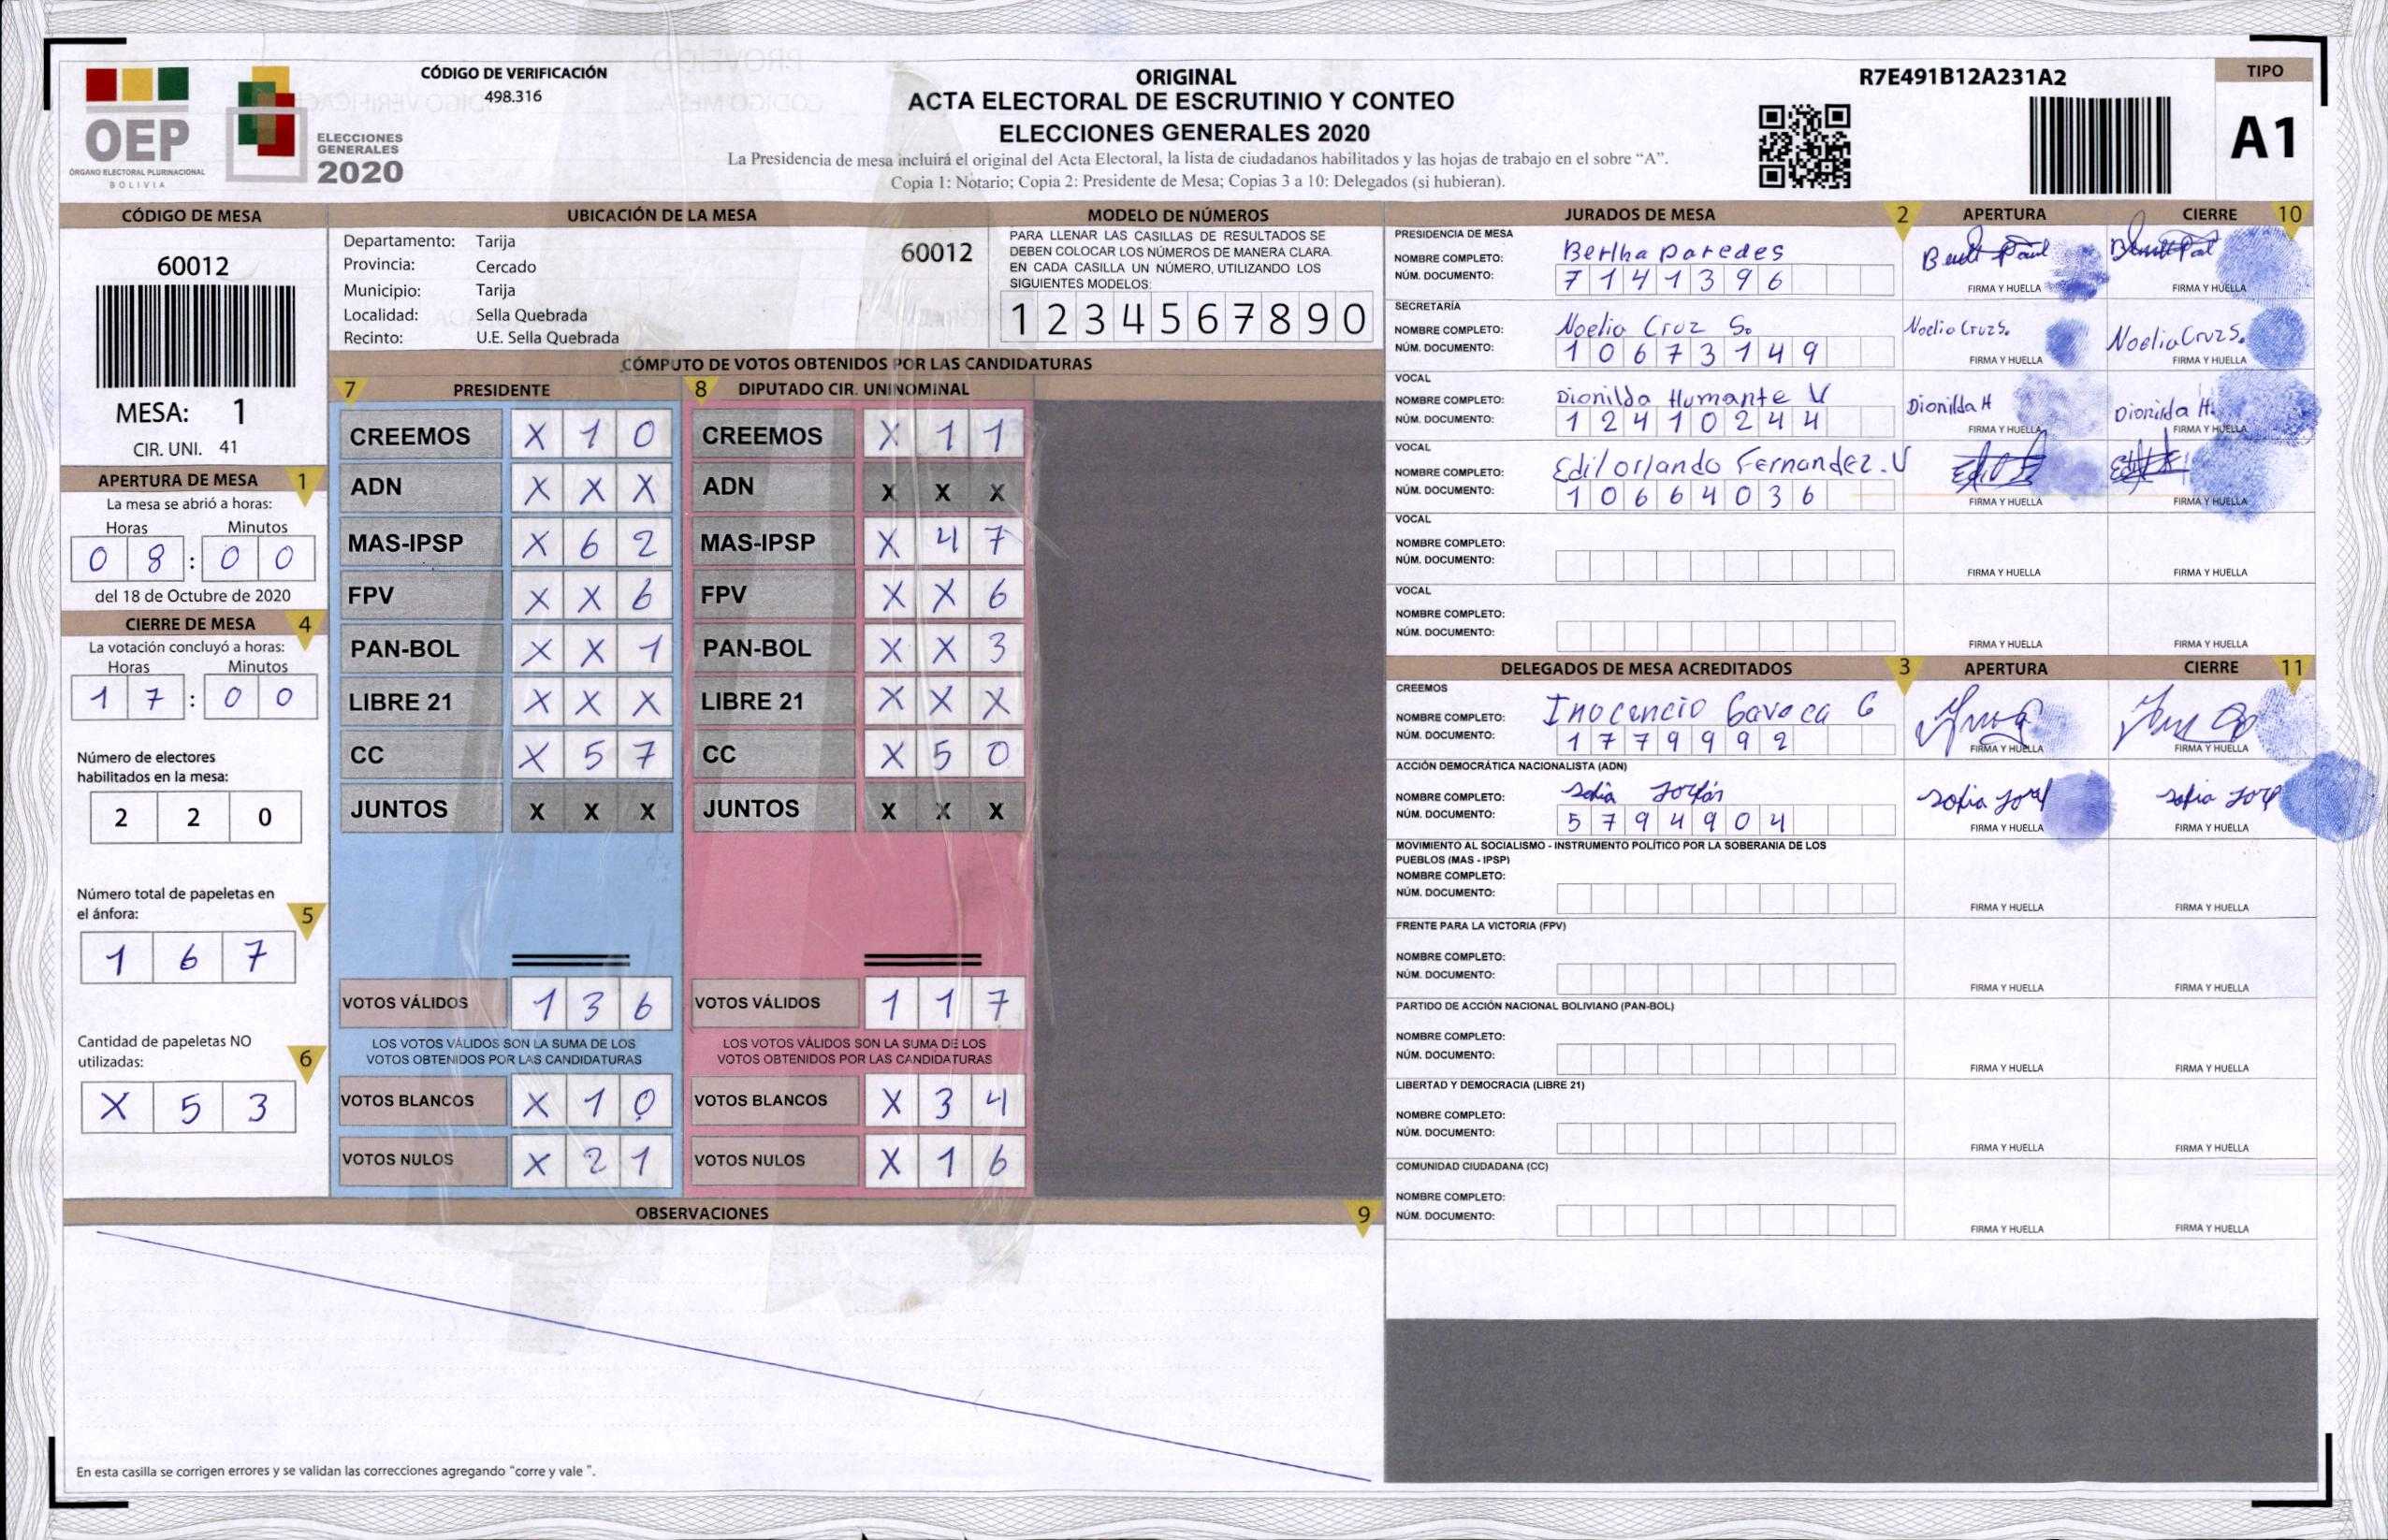 OEP
ÓRGANO ELECTORAL PLURINACIONAL
BOLIVIA
ELECCIONES
GENERALES
2020
CÓDIGO DE VERIFICACIÓN
498.316
ORIGINAL
ACTA ELECTORAL DE ESCRUTINIO Y CONTEO
ELECCIONES GENERALES 2020
La Presidencia de mesa incluirá el original del Acta Electoral, la lista de ciudadanos habilitados y las hojas de trabajo en el sobre “A”.
Copia 1: Notario; Copia 2: Presidente de Mesa; Copias 3 a 10: Delegados (si hubieran).
R7E491B12A231A2
TIPO
A1
CÓDIGO DE MESA
60012
MESA: 1
CIR. UNI. 41
APERTURA DE MESA 1
La mesa se abrió a horas:
Horas Minutos
0 8 : 0 0
del 18 de Octubre de 2020
CIERRE DE MESA 4
La votación concluyó a horas:
Horas Minutos
1 7 : 0 0
Número de electores
habilitados en la mesa:
2 2 0
Número total de papeletas en
el ánfora: 5
1 6 7
Cantidad de papeletas NO
utilizadas: 6
X 5 3
UBICACIÓN DE LA MESA
Departamento: Tarija
Provincia: Cercado
Municipio: Tarija
Localidad: Sella Quebrada
Recinto: U.E. Sella Quebrada
60012
MODELO DE NÚMEROS
PARA LLENAR LAS CASILLAS DE RESULTADOS SE
DEBEN COLOCAR LOS NÚMEROS DE MANERA CLARA.
EN CADA CASILLA UN NÚMERO, UTILIZANDO LOS
SIGUIENTES MODELOS:
1 2 3 4 5 6 7 8 9 0
CÓMPUTO DE VOTOS OBTENIDOS POR LAS CANDIDATURAS
7 PRESIDENTE 8 DIPUTADO CIR. UNINOMINAL
CREEMOS X 1 0 CREEMOS X 1 1
ADN X X X ADN X X X
MAS-IPSP X 6 2 MAS-IPSP X 4 7
FPV X X 6 FPV X X 6
PAN-BOL X X 1 PAN-BOL X X 3
LIBRE 21 X X X LIBRE 21 X X X
CC X 5 7 CC X 5 0
JUNTOS X X X JUNTOS X X X
VOTOS VÁLIDOS 1 3 6 VOTOS VÁLIDOS 1 1 7
LOS VOTOS VÁLIDOS SON LA SUMA DE LOS LOS VOTOS VÁLIDOS SON LA SUMA DE LOS
VOTOS OBTENIDOS POR LAS CANDIDATURAS VOTOS OBTENIDOS POR LAS CANDIDATURAS
VOTOS BLANCOS X 1 0 VOTOS BLANCOS X 3 4
VOTOS NULOS X 2 1 VOTOS NULOS X 1 6
OBSERVACIONES 9
En esta casilla se corrigen errores y se validan las correcciones agregando “corre y vale ”.
JURADOS DE MESA 2 APERTURA CIERRE 10
PRESIDENCIA DE MESA
NOMBRE COMPLETO: Bertha Paredes
NÚM. DOCUMENTO: 7 1 4 1 3 9 6
FIRMA Y HUELLA FIRMA Y HUELLA
SECRETARÍA
NOMBRE COMPLETO: Noelia Cruz S. Noelia Cruz S. Noelia Cruz S.
NÚM. DOCUMENTO: 1 0 6 7 3 1 4 9
FIRMA Y HUELLA FIRMA Y HUELLA
VOCAL
NOMBRE COMPLETO: Dionilda Humante V Dionilda H Dionilda H.
NÚM. DOCUMENTO: 1 2 4 1 0 2 4 4
FIRMA Y HUELLA FIRMA Y HUELLA
VOCAL
NOMBRE COMPLETO: Edil orlando Fernandez. V
NÚM. DOCUMENTO: 1 0 6 6 4 0 3 6
FIRMA Y HUELLA FIRMA Y HUELLA
VOCAL
NOMBRE COMPLETO:
NÚM. DOCUMENTO:
FIRMA Y HUELLA FIRMA Y HUELLA
VOCAL
NOMBRE COMPLETO:
NÚM. DOCUMENTO:
FIRMA Y HUELLA FIRMA Y HUELLA
DELEGADOS DE MESA ACREDITADOS 3 APERTURA CIERRE 11
CREEMOS
NOMBRE COMPLETO: Inocencio Gareca G
NÚM. DOCUMENTO: 1 7 7 9 9 9 2
FIRMA Y HUELLA FIRMA Y HUELLA
ACCIÓN DEMOCRÁTICA NACIONALISTA (ADN)
NOMBRE COMPLETO: Sofia
NÚM. DOCUMENTO: 5 7 9 4 9 0 4
FIRMA Y HUELLA FIRMA Y HUELLA
MOVIMIENTO AL SOCIALISMO - INSTRUMENTO POLÍTICO POR LA SOBERANIA DE LOS
PUEBLOS (MAS - IPSP)
NOMBRE COMPLETO:
NÚM. DOCUMENTO:
FIRMA Y HUELLA FIRMA Y HUELLA
FRENTE PARA LA VICTORIA (FPV)
NOMBRE COMPLETO:
NÚM. DOCUMENTO:
FIRMA Y HUELLA FIRMA Y HUELLA
PARTIDO DE ACCIÓN NACIONAL BOLIVIANO (PAN-BOL)
NOMBRE COMPLETO:
NÚM. DOCUMENTO:
FIRMA Y HUELLA FIRMA Y HUELLA
LIBERTAD Y DEMOCRACIA (LIBRE 21)
NOMBRE COMPLETO:
NÚM. DOCUMENTO:
FIRMA Y HUELLA FIRMA Y HUELLA
COMUNIDAD CIUDADANA (CC)
NOMBRE COMPLETO:
NÚM. DOCUMENTO:
FIRMA Y HUELLA FIRMA Y HUELLA